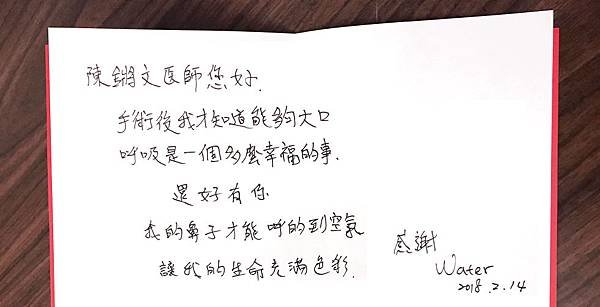 陳鏘文医師您好.
手術後我才知道能夠大口
呼吸是一個多麼幸福的事.
還好有你
我的鼻子才能呼的到空氣
讓我的生命充滿色彩.
感謝
Water
2018.2.14